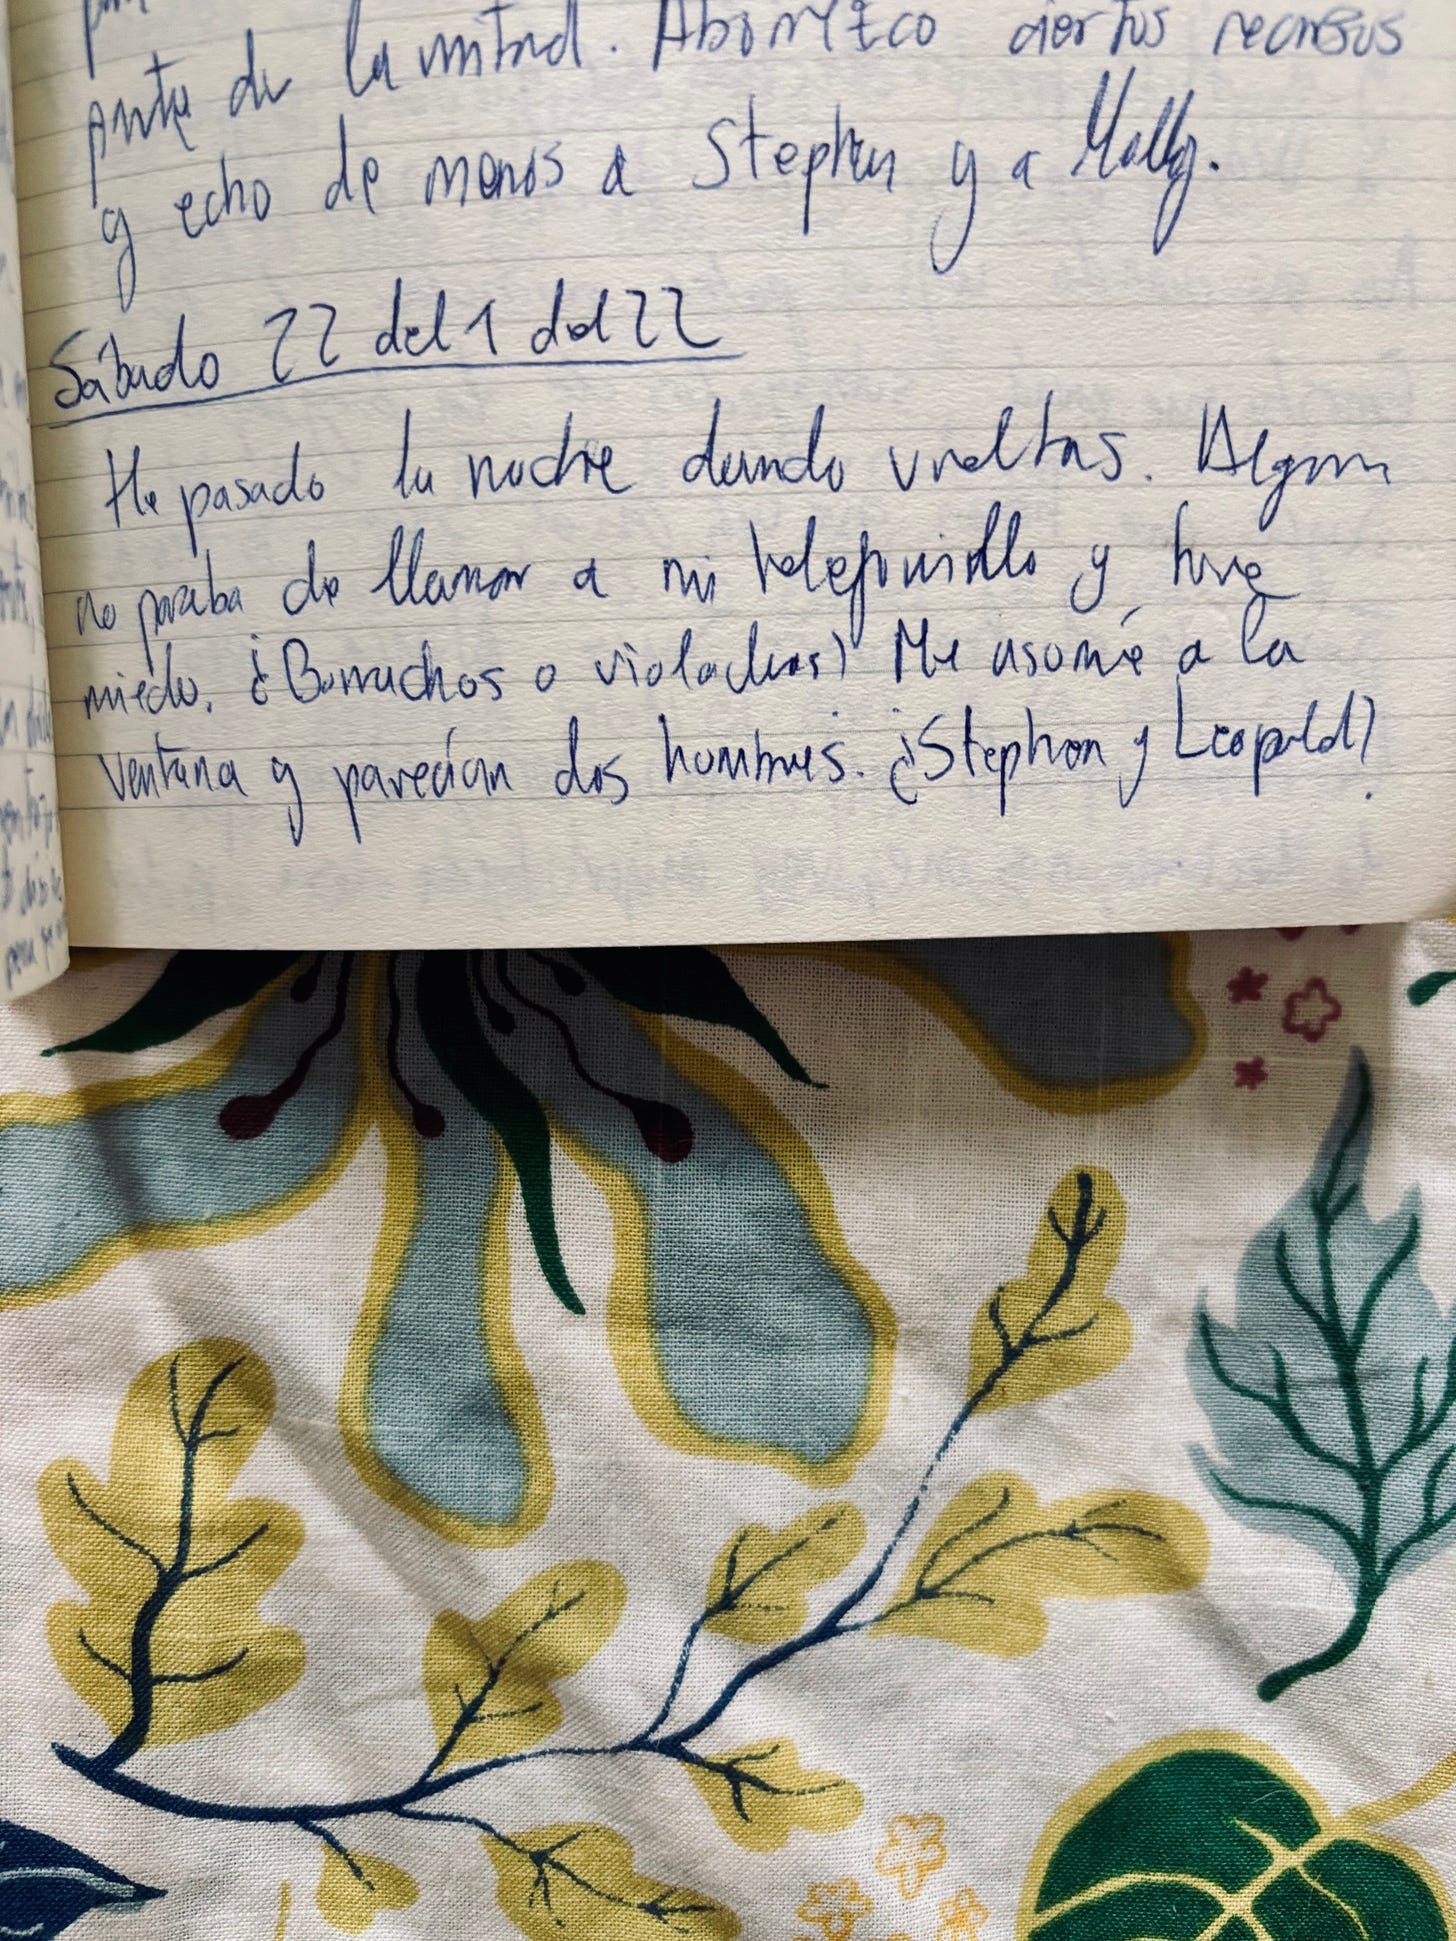 ante de la mitad. Aborrezco ciertos recursos
y echo de menos a Stephen y a Molly.
Sábado 22 del 1 del 22
He pasado la noche dando vueltas. Alguien
no paraba de llamar a mi telefonillo y tuve
miedo. ¿Borrachos o violadores? Me asomé a la
ventana y parecían dos hombres. ¿Stephen y Leopold?